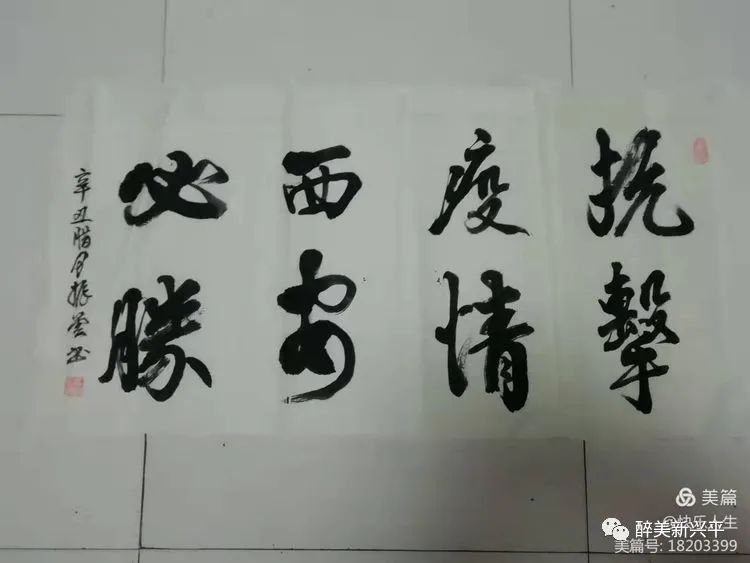 抗擊
疫情
西安
必勝
辛丑腊月振營书
美篇
@快乐人生
醉美新兴平
美篇号: 18203399